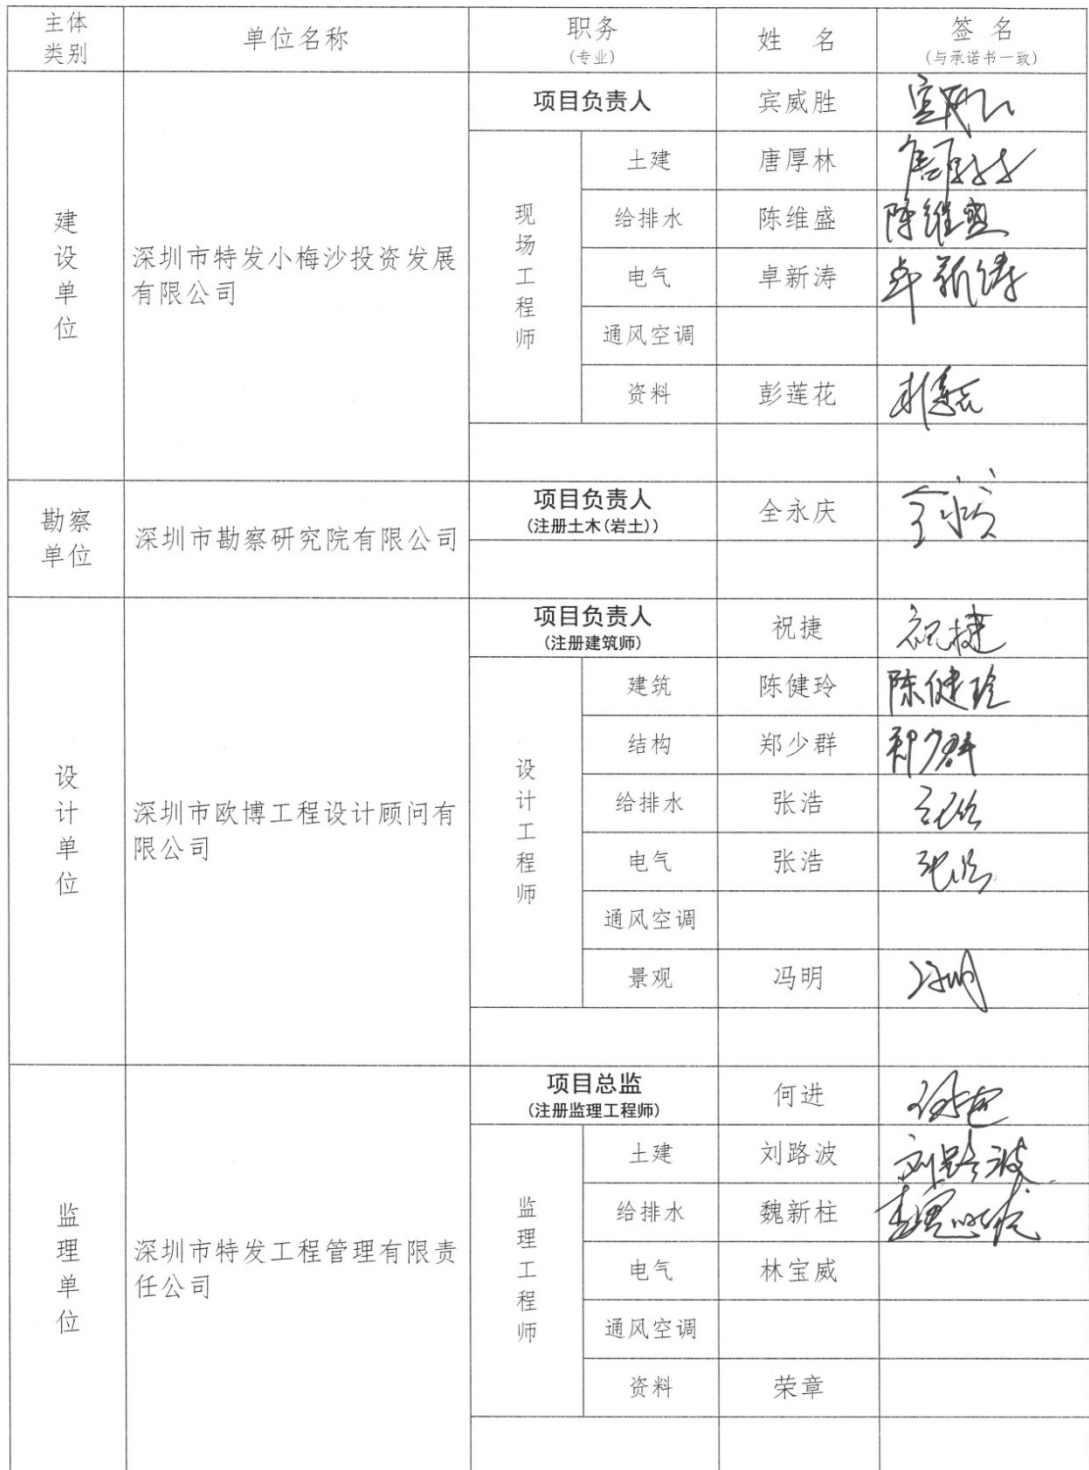 主体类别 单位名称 职务(专业) 姓 名 签 名(与承诺书一致)
建设单位 深圳市特发小梅沙投资发展有限公司
项目负责人 宾威胜
现场工程师
土建 唐厚林
给排水 陈维盛 陈维盛
电气 卓新涛 卓新涛
通风空调
资料 彭莲花
勘察单位 深圳市勘察研究院有限公司
项目负责人(注册土木(岩土)) 全永庆
设计单位 深圳市欧博工程设计顾问有限公司
项目负责人(注册建筑师) 祝捷 祝捷
设计工程师
建筑 陈健玲 陈健玲
结构 郑少群 郑少群
给排水 张浩
电气 张浩 张浩
通风空调
景观 冯明 冯明
监理单位 深圳市特发工程管理有限责任公司
项目总监(注册监理工程师) 何进
监理工程师
土建 刘路波 刘路波
给排水 魏新柱
电气 林宝威
通风空调
资料 荣章